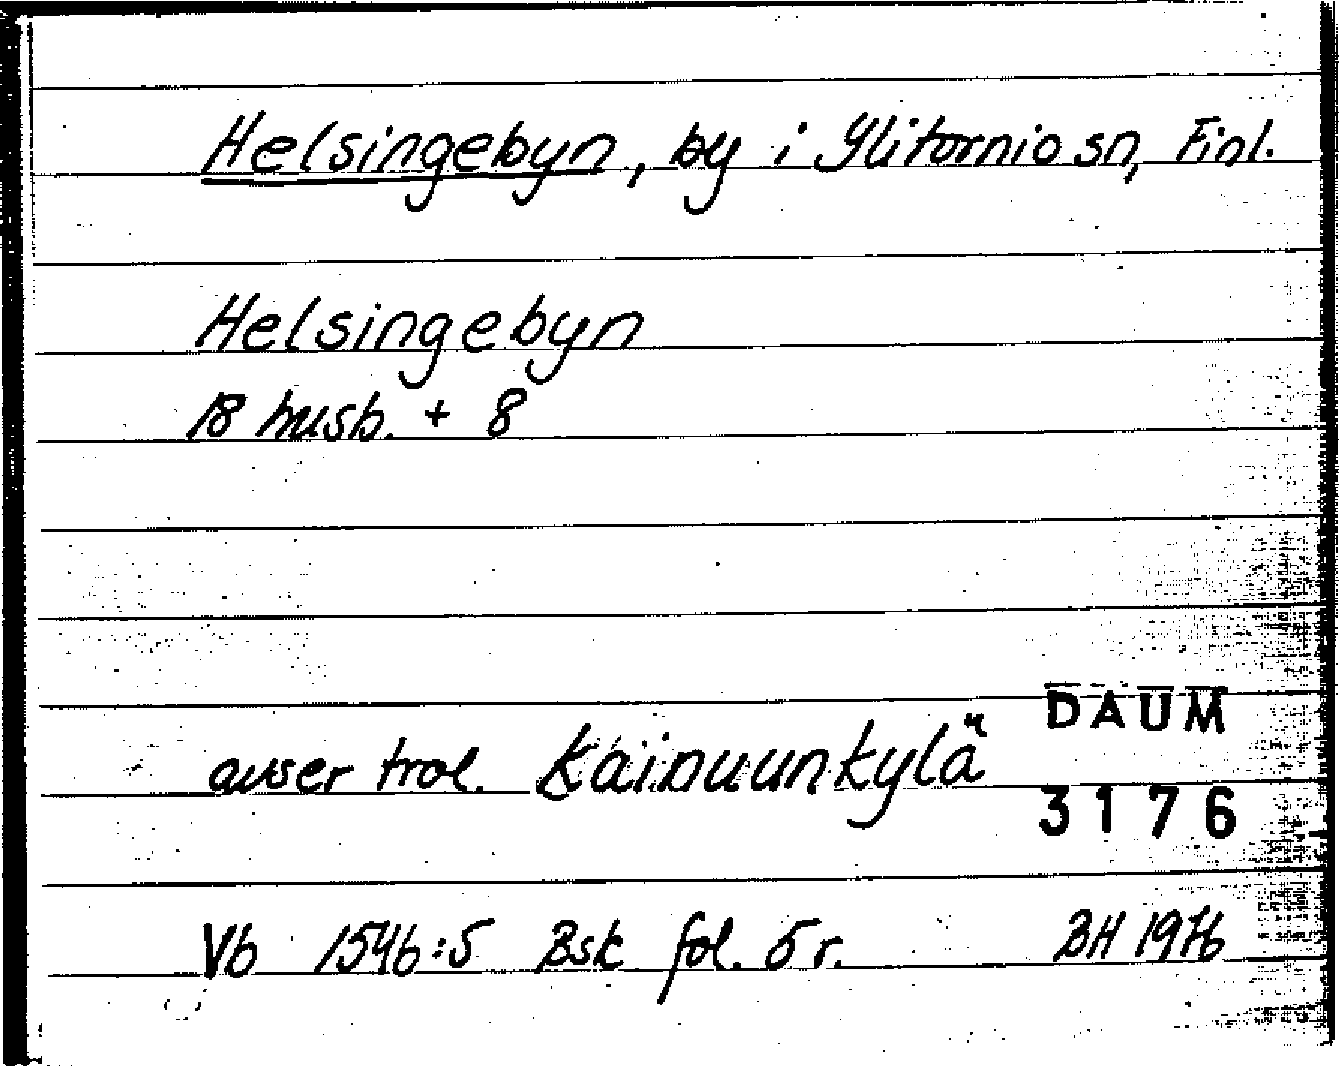 Helsingebyn, by i Ylitornio sn, Finl.
Helsingebyn
18 husb. + 8
avser trol. Kainuunkylä
DAUM
3176
Vb 1546:5 Bsk fol. 5 r. BH 1976